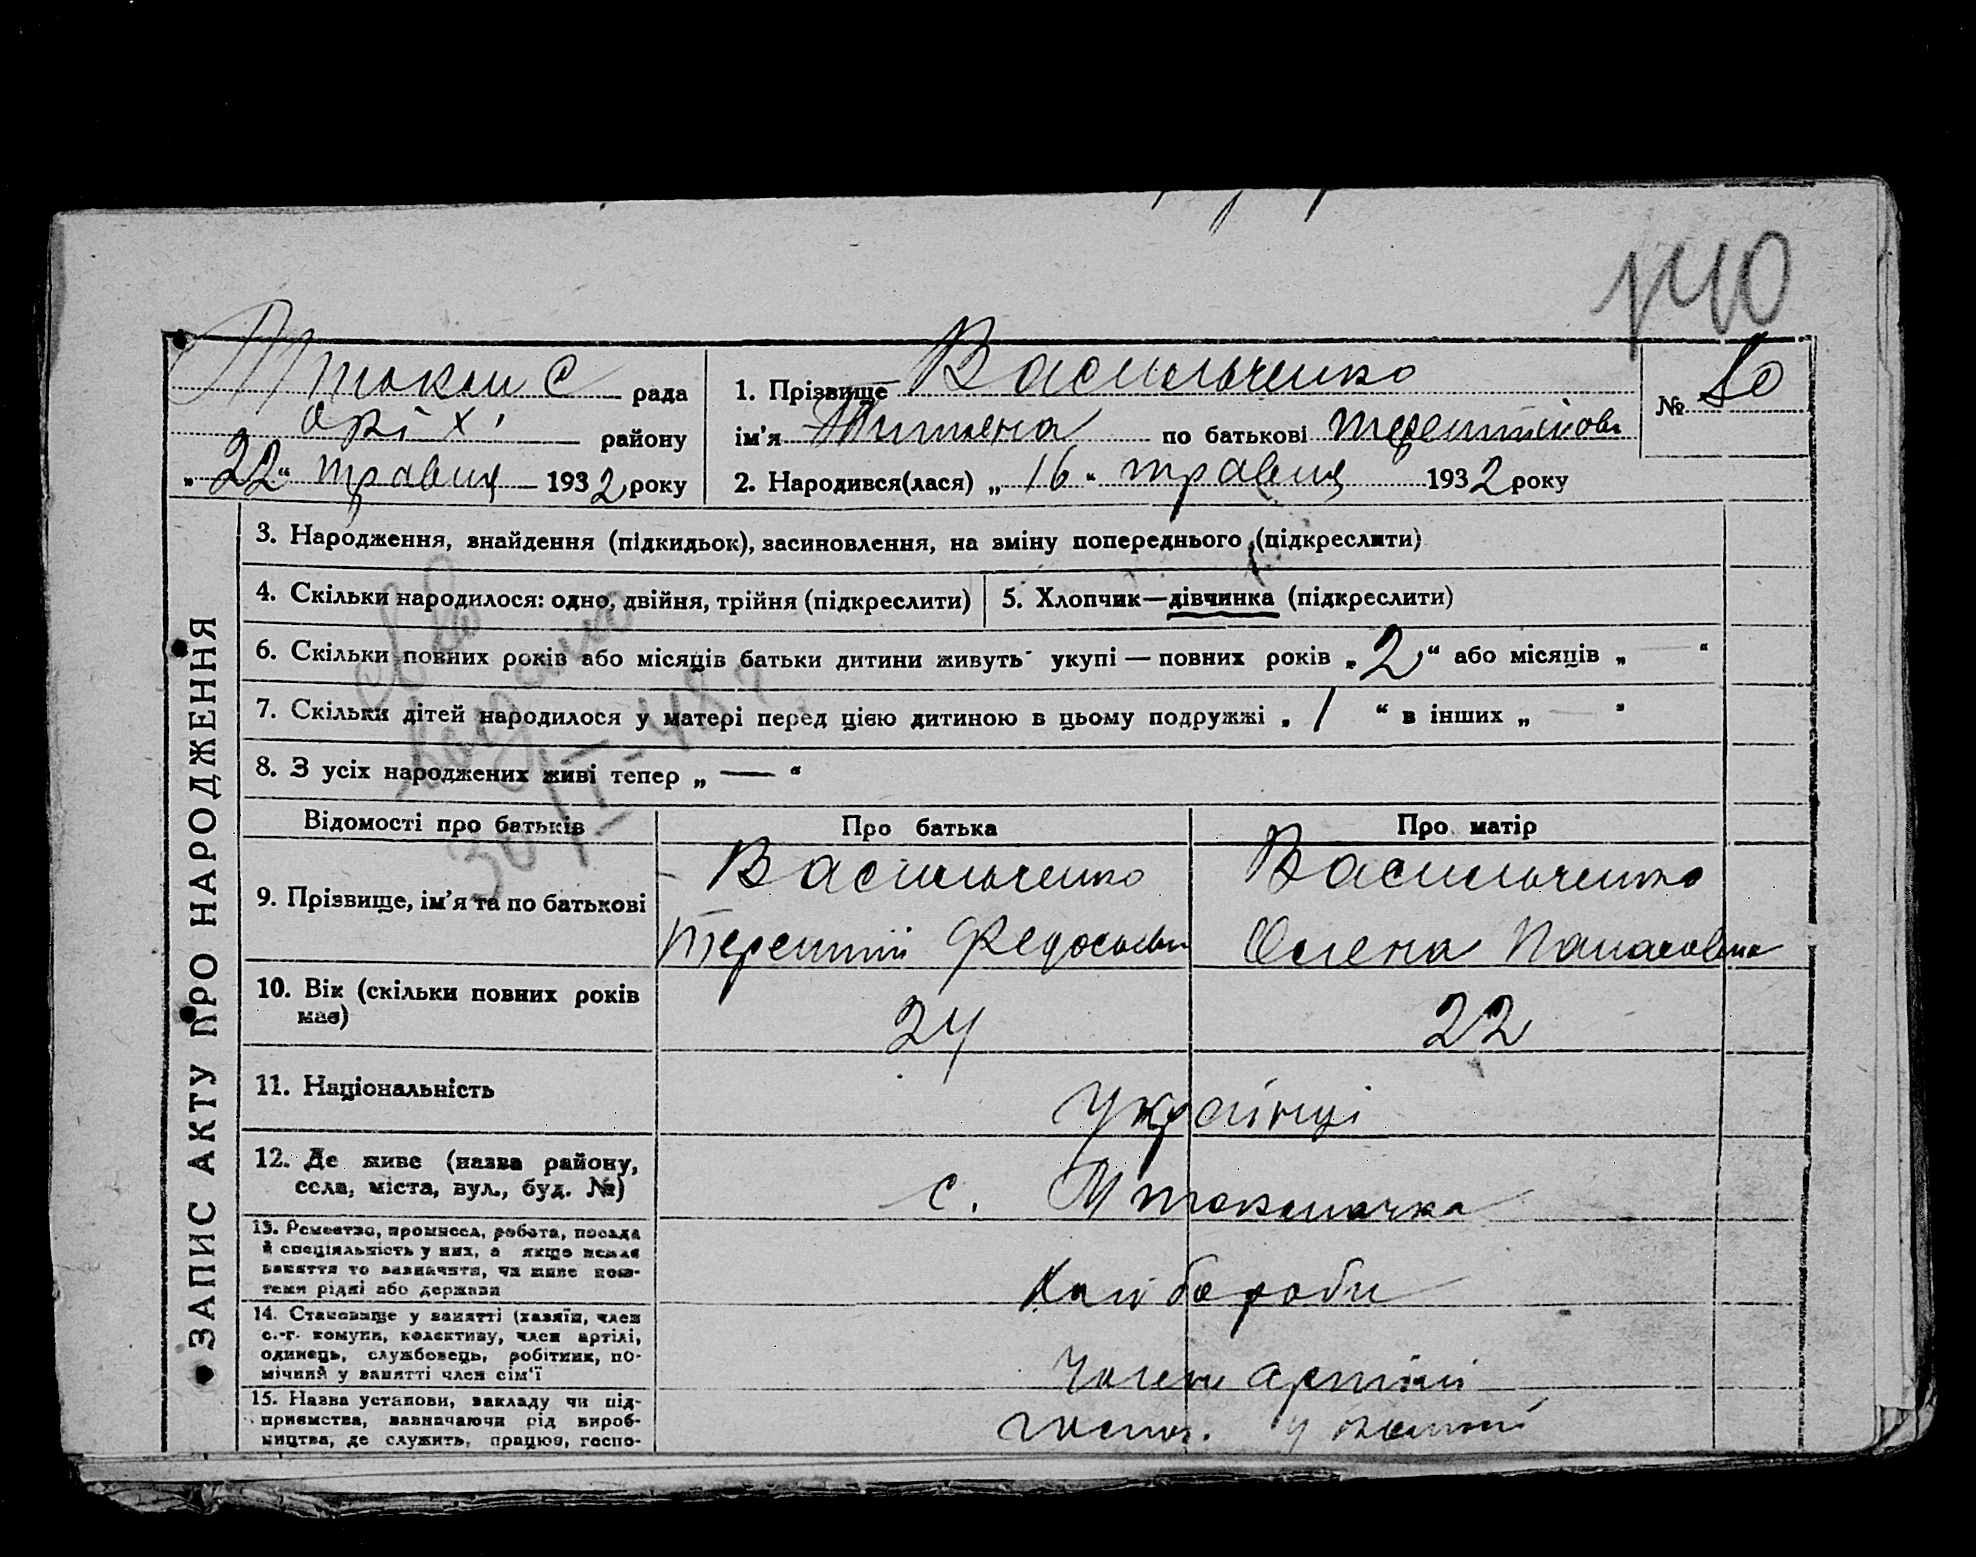 140
М токм С рада
оріх. району
„22“ травня 1932 року
1. Прізвище Васильченко
ім'я по батькові
№
2. Народився(лася) „16“ травня 1932 року
ЗАПИС АКТУ ПРО НАРОДЖЕННЯ
3. Народження, знайдення (підкидьок), засиновлення, на зміну попереднього (підкреслити)
4. Скільки народилося: одно, двійня, трійня (підкреслити)
5. Хлопчик—дівчинка (підкреслити)
6. Скільки повних років або місяців батьки дитини живуть укупі — повних років „2“ або місяців „—“
7. Скільки дітей народилося у матері перед цією дитиною в цьому подружжі „1“ в інших „—“
8. З усіх народжених живі тепер „—“
Відомості про батьків
Про батька
Про матір
9. Прізвище, ім'я та по батькові
Васильченко
Терентій Федосьєви
Васильченко
Олена Панасовна
10. Вік (скільки повних років
має)
24
22
11. Національність
Українці
12. Де живе (назва району,
села, міста, вул., буд. №)
с. М токмачка
13. Ремество, промисел, робота, посада
й спеціяльність у них, а якщо немає
заняття то зазначити, чи живе кош-
теми рідні або держави
Хлібороби
14. Становище у занятті (хазяїн, член
с.-г. комуни, колективу, член артілі,
одинець, службовець, робітник, по-
мічний у занятті член сім'ї
Члени артілі
15. Назва установи, закладу чи під-
приємства, зазначаючи рід вироб-
ництва, де служить, працює, госпо-